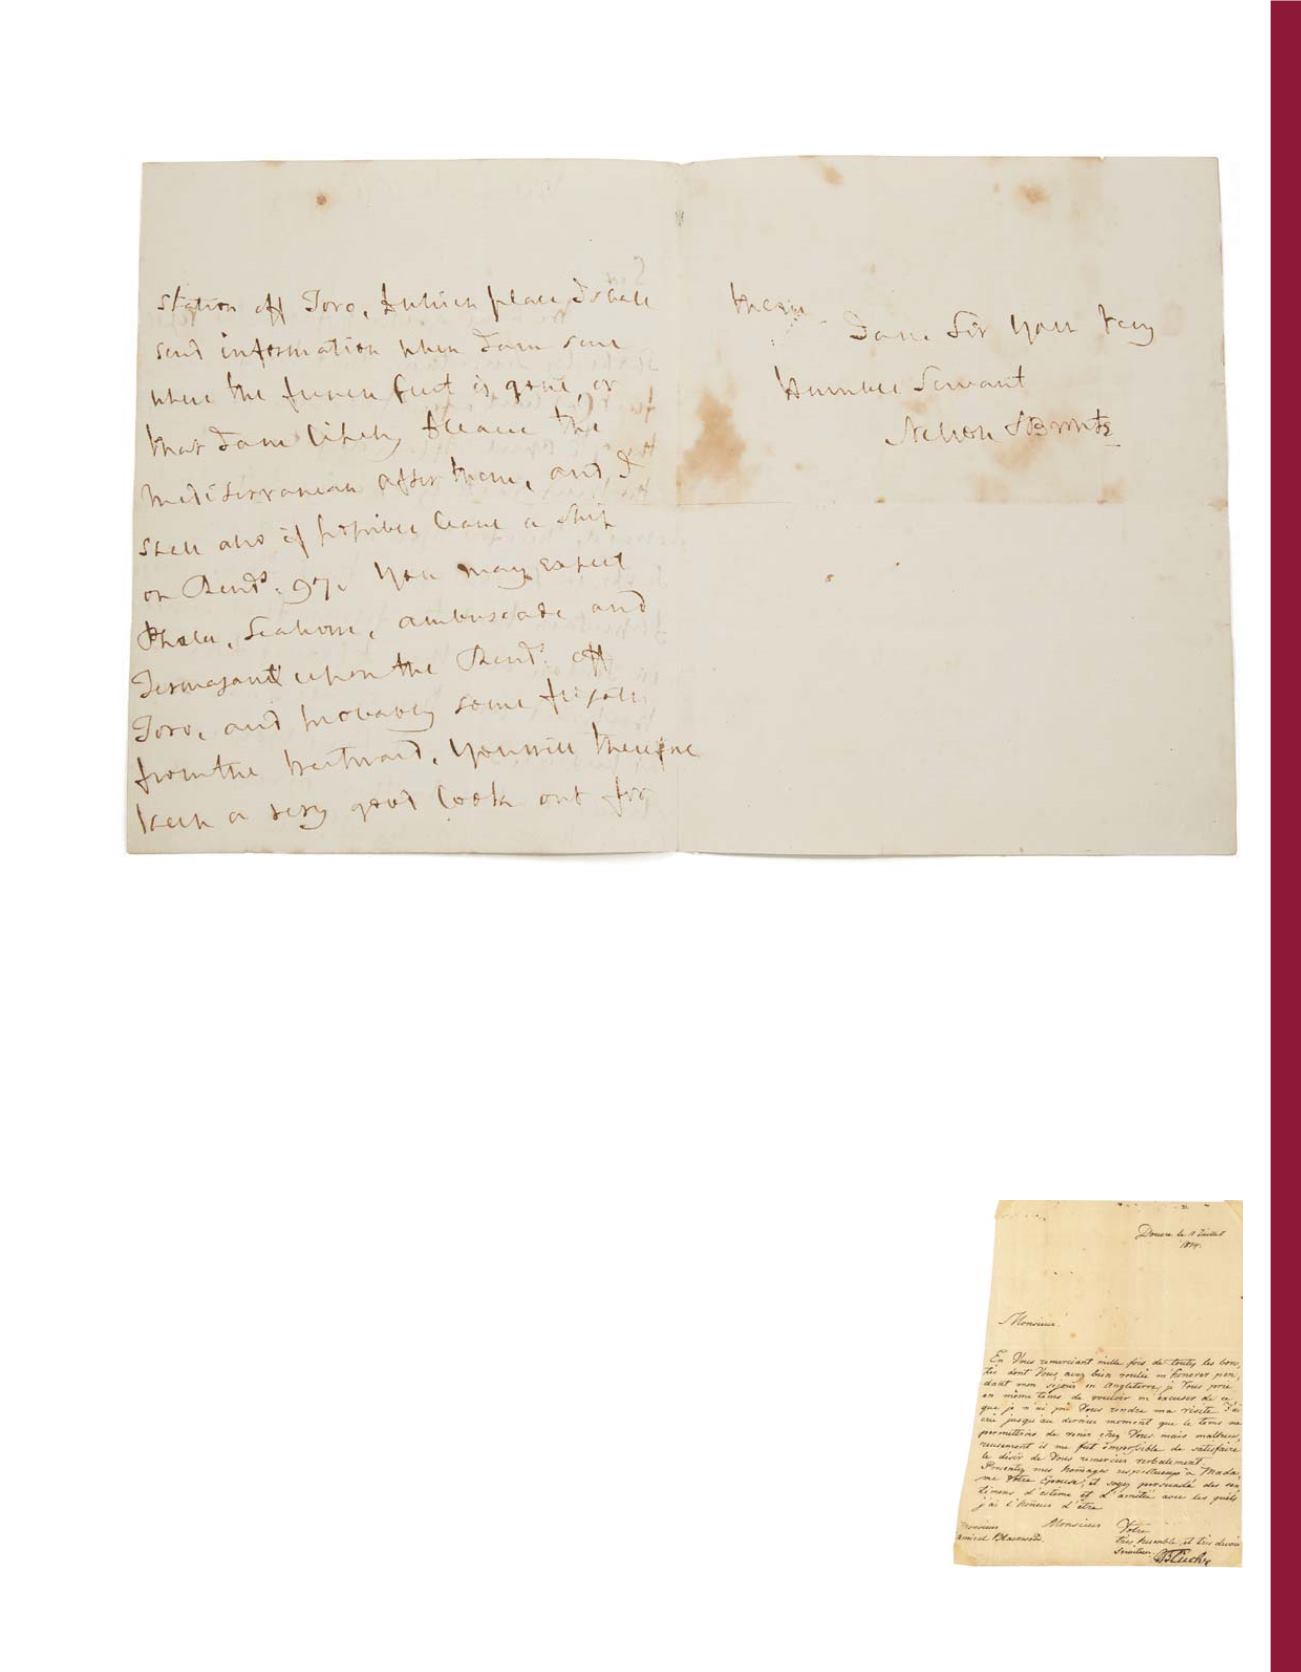 station off Toro, to which place I shall
send information when I am sure
where the french fleet is gone, or
that I am likely to leave the
Mediterranean after them, and I
shall also if possible leave a ship
on Rends. 97. You may expect
Phebe, Seahorse, ambuscade and
Termagant upon the Rends. off
Toro, and probably some frigates
from the Westward, You will therefore
keep a very good look out for
them
I am Sir Your Very
Humble Servant
Nelson & Bronte
Douvre le Juillet
1814.
Monsieur
En Vous remerciant mille fois de toutes les bon,
tés dont Vous avez bien voulu m'honorer pen,
dant mon séjour en Angleterre, je Vous prie
en même tems de vouloir m'excuser de ce
que je n'ai pu Vous rendre ma visite. J'ai
crû jusqu'au dernier moment que le tems me
permettrois de venir chez Vous mais malheu,
reusement il me fut impossible de satisfaire
le désir de Vous remercier verbalement.
Presentez mes homages respectueux à Mada,
me Votre Epouse, et soyez persuadé des sen
timens d'estime et d'amitié avec les quels
j'ai l'honneur d'être
Monsieur
Votre
très humble et très devoué
serviteur
Blücher
Monsieur
amiral Blackwood.